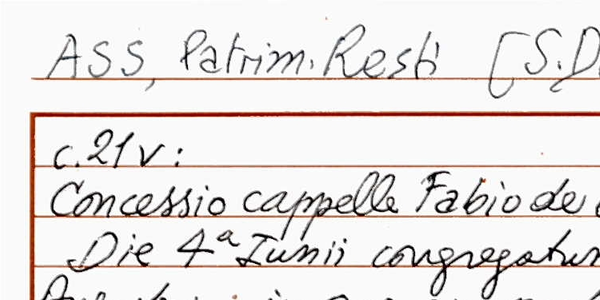 ASS, Patrim. Resti [S.D
c.21v:
Concessio cappelle Fabio de
Die 4ª Iunii congregatur